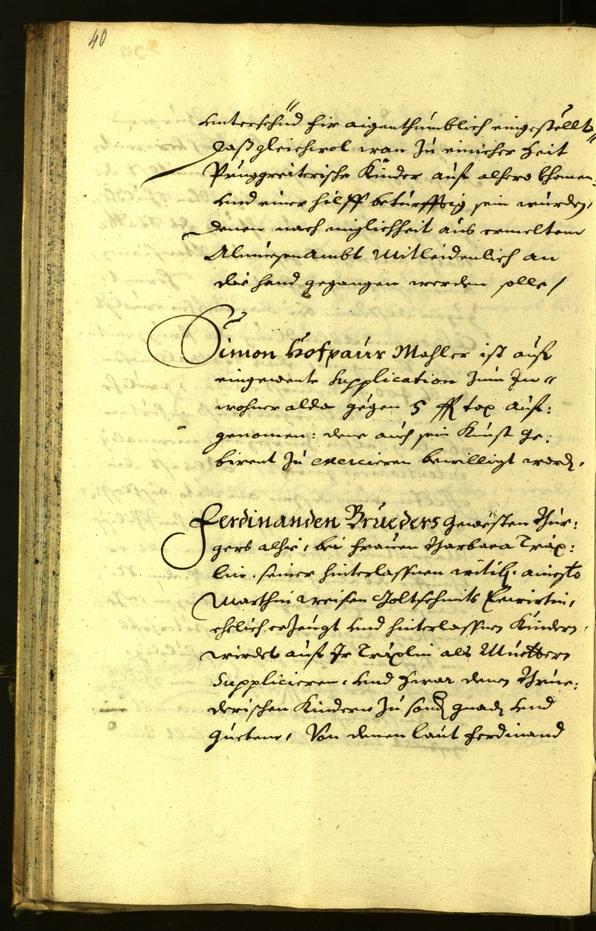 40
unterschid hir aigenthumblich eingestellt,
daß gleichwol wan zu einicher Zeit
Pruggreiterische Kinder auf alhero khomen,
und einer hilff betürfftig sein wurden,
denen nach miglichheit aus ermeltem
Almuesenambt mitleidenlich an
die hand gegangen werden solle /
Simon Hofpaur Mahler ist auf
eingewente Supplication zum In„
wohner alda gegen 5 tax auf:
genomen: deme auch sein Kunst ge:
birent zu exercieren bewilligt word.
Ferdinanden Brueders gewesten Bur:
gers alhie, bei Frauen Barbara Träx:
lin, seiner hinterlassnen witib, aniezto
Marthin weisen Goltschmits Ewirtin,
ehelich erzeugt und hinterlassnen Kindern,
wirdet auf Ir Träxlin als Muettern
Supplicieren, und zwar denen Brue:
derischen Kindern zu sond. gnad. und
guetem, Von denen laut Ferdinand